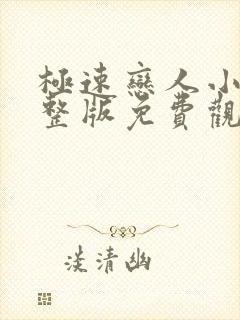 極速戀人小
整版免費觀
淡清幽